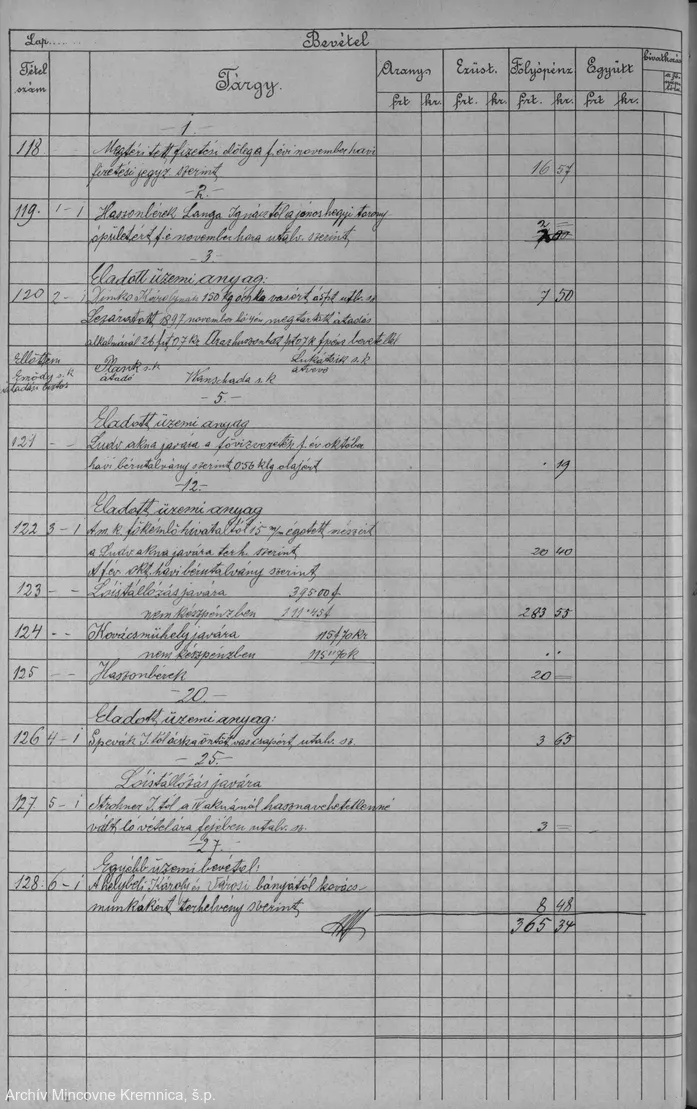 Lap
Bevétel
Tétel szám
Tárgy.
Arany
Ezüst.
Folyópénz
Együtt
frt. kr. frt. kr. frt. kr. frt. kr.
- 1 -
118 - - Megtérített fizetési előleg f. évi november havi
fizetési jegyz. szerint 16 57
- 2. -
119. 1 - 1 Haszonbérek Langa Ignácztól a jánoshegyi torony
épületért f. é. november hóra utalv. szerint
- 3. -
Eladott üzemi anyag:
120 2 - 1 150 kg ócska vasért utlv. sz. 7 50
Lezáratott 1897 november hó megtartott átadás
alkalmával
Plasik s.k. Lukátsik s.k.
átadó Wanschada s.k. átvevő
- 5. -
Eladott üzemi anyag
121 - - Ludv. akna javára a fővízvezeték f. év október
havi bérutalvány szerint 0.56 klg olajért . 19
- 12. -
Eladott üzemi anyag
122 3 - 1 A m. k. főkémlőhivataltól 15 m/m égetett mészért
a Ludv. akna javára terh. szerint 20 40
A f. év okt. havi bérutalvány szerint
123 - - Lóistállózás javára 395.00 f.
nem készpénzben 111.45 f. 283 55
124 - - Kovácsműhely javára 115 f 70 kr
nem készpénzben 115 " 70 k . .
125 - - Haszonbérek 20 =
- 20. -
Eladott üzemi anyag:
126 4 - 1 Spevák J. től ócska öntöt vas csapért, utalv. sz. 3 65
- 25. -
Lóistállózás javára
127 5 - 1 Strohner J. tól a aknánál hasznavehetetlenné
vált ló vételára fejében utalv. sz. 3 =
- 27. -
Egyébb üzemi bevétel:
128. 6 - 1 A helybeli Károly és Városi bányától kovács-
munkákért terhelvény szerint 8 48
365 34
Archív Mincovne Kremnica, š.p.